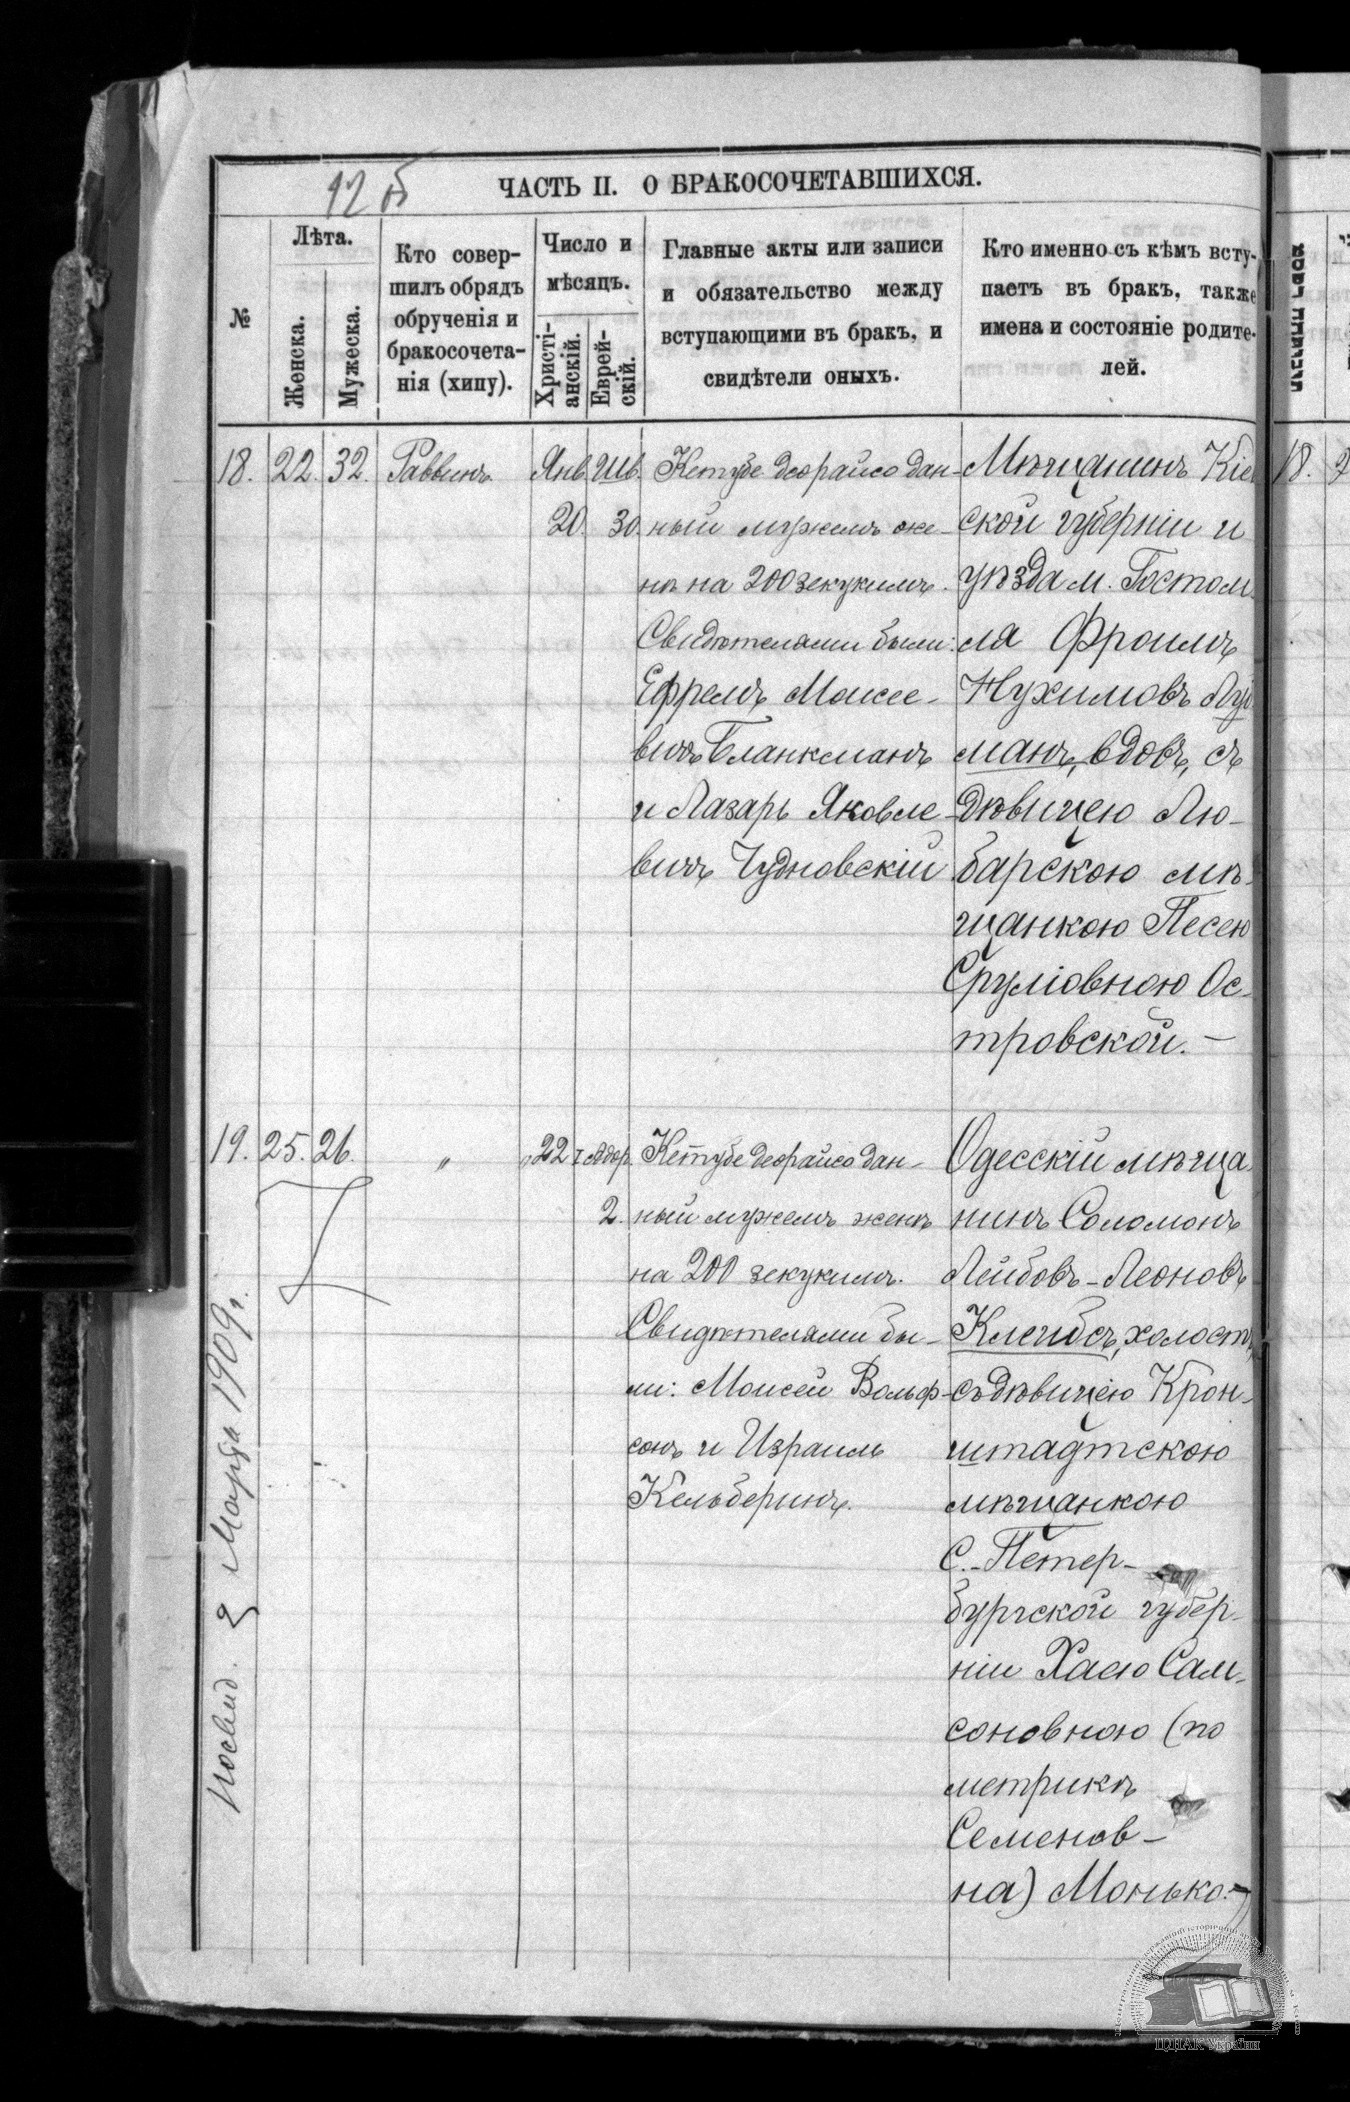 12 об
ЧАСТЬ II. О БРАКОСОЧЕТАВШИХСЯ.
№
Лѣта.
Женска.
Мужеска.
Кто совер-
шилъ обрядъ
обрученія и
бракосочета-
нія (хипу).
Число и
мѣсяцъ.
Христі-
анскій.
Еврей-
скій.
Главные акты или записи
и обязательство между
вступающими въ бракъ, и
свидѣтели оныхъ.
Кто именно съ кѣмъ всту-
паетъ въ бракъ, также
имена и состояніе родите-
лей.
18. 22. 32. Раввинъ. Янв. Шв.
20. 30.
Кетубе деорайсо дан-
ный мужемъ же-
нѣ на 200 зекукимъ.
Свидѣтелями были:
Ефремъ Моисее-
вичъ Бланкманъ
и Лазарь Яковле-
вичъ Чудновскій
Мѣщанинъ Кіев
ской губерніи и
уѣзда м. Гостом
ля Фроимъ
Нухимовъ
манъ, вдовъ, съ
дѣвицею Лю-
барскою мѣ-
щанкою Песею
Сруліовною Ос-
тровской. —
19. 25. 26. " " 22 Адор.
2.
Кетубе деорайсо дан-
ный мужемъ женѣ
на 200 зекукимъ.
Свидѣтелями бы-
ли: Моисей Вольф-
сонъ и Израиль
Кельберинъ.
Одесскій мѣща
нинъ Соломонъ
Лейбовъ-Леоновъ
Клейбсъ, холостъ,
съ дѣвицею Крон-
штадтскою
мѣщанкою
С.-Петер-
бургской губер-
ніи Хаею Сам-
соновною (по
метрикѣ
Семенов-
на) Монько. —
2 Марта 1909 г.
18.
ЦДІАК України